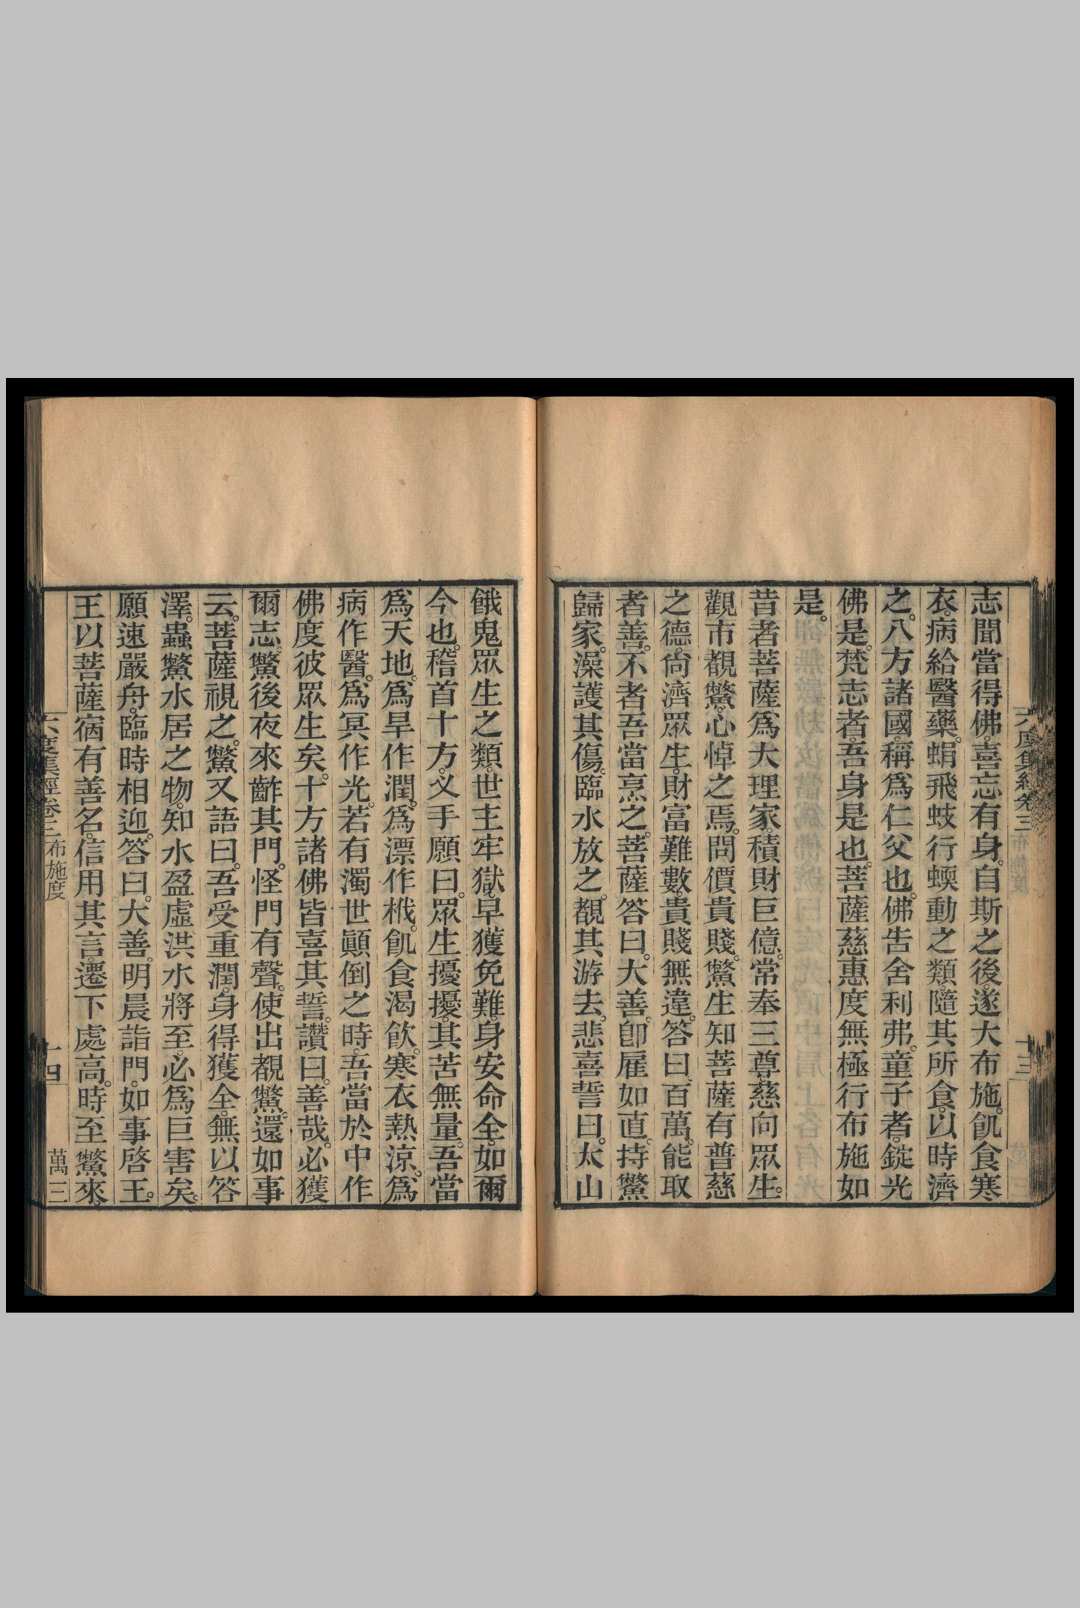 六度集經卷三 布施度 十三
志聞當得佛。喜忘有身。自斯之後。遂大布施。飢食寒
衣。病給醫藥。蜎飛蚑行蝡動之類。隨其所食。以時濟
之。八方諸國。稱爲仁父也。佛告舍利弗。童子者。錠光
佛是。梵志者。吾身是也。菩薩慈惠度無極行布施如
是。
昔者菩薩爲大理家。積財巨億。常奉三尊。慈向眾生。
觀市覩鱉。心悼之焉。問價貴賤。鱉生知菩薩有普慈
之德。尚濟眾生。財富難數。貴賤無違。答曰。百萬。能取
者善。不者吾當烹之。菩薩答曰。大善。卽雇如直。持鱉
歸家。澡護其傷。臨水放之。覩其游去。悲喜誓曰。太山
餓鬼眾生之類。世主牢獄。早獲免難。身安命全。如爾
今也。稽首十方。叉手願曰。眾生擾擾。其苦無量。吾當
爲天地。爲旱作潤。爲漂作栰。飢食渴飲。寒衣熱涼。爲
病作醫。爲冥作光。若有濁世顚倒之時。吾當於中作
佛度彼眾生矣。十方諸佛皆喜其誓。讚曰。善哉。必獲
爾志。鱉後夜來。齚其門。怪門有聲。使出覩鱉。還如事
云。菩薩視之。鱉又語曰。吾受重潤。身得獲全。無以答
澤。蟲鱉水居之物。知水盈虛。洪水將至。必爲巨害矣。
願速嚴舟。臨時相迎。答曰。大善。明晨詣門。如事啓王。
王以菩薩宿有善名。信用其言。遷下處高。時至鱉來。
六度集經卷三 布施度 十四 萬三